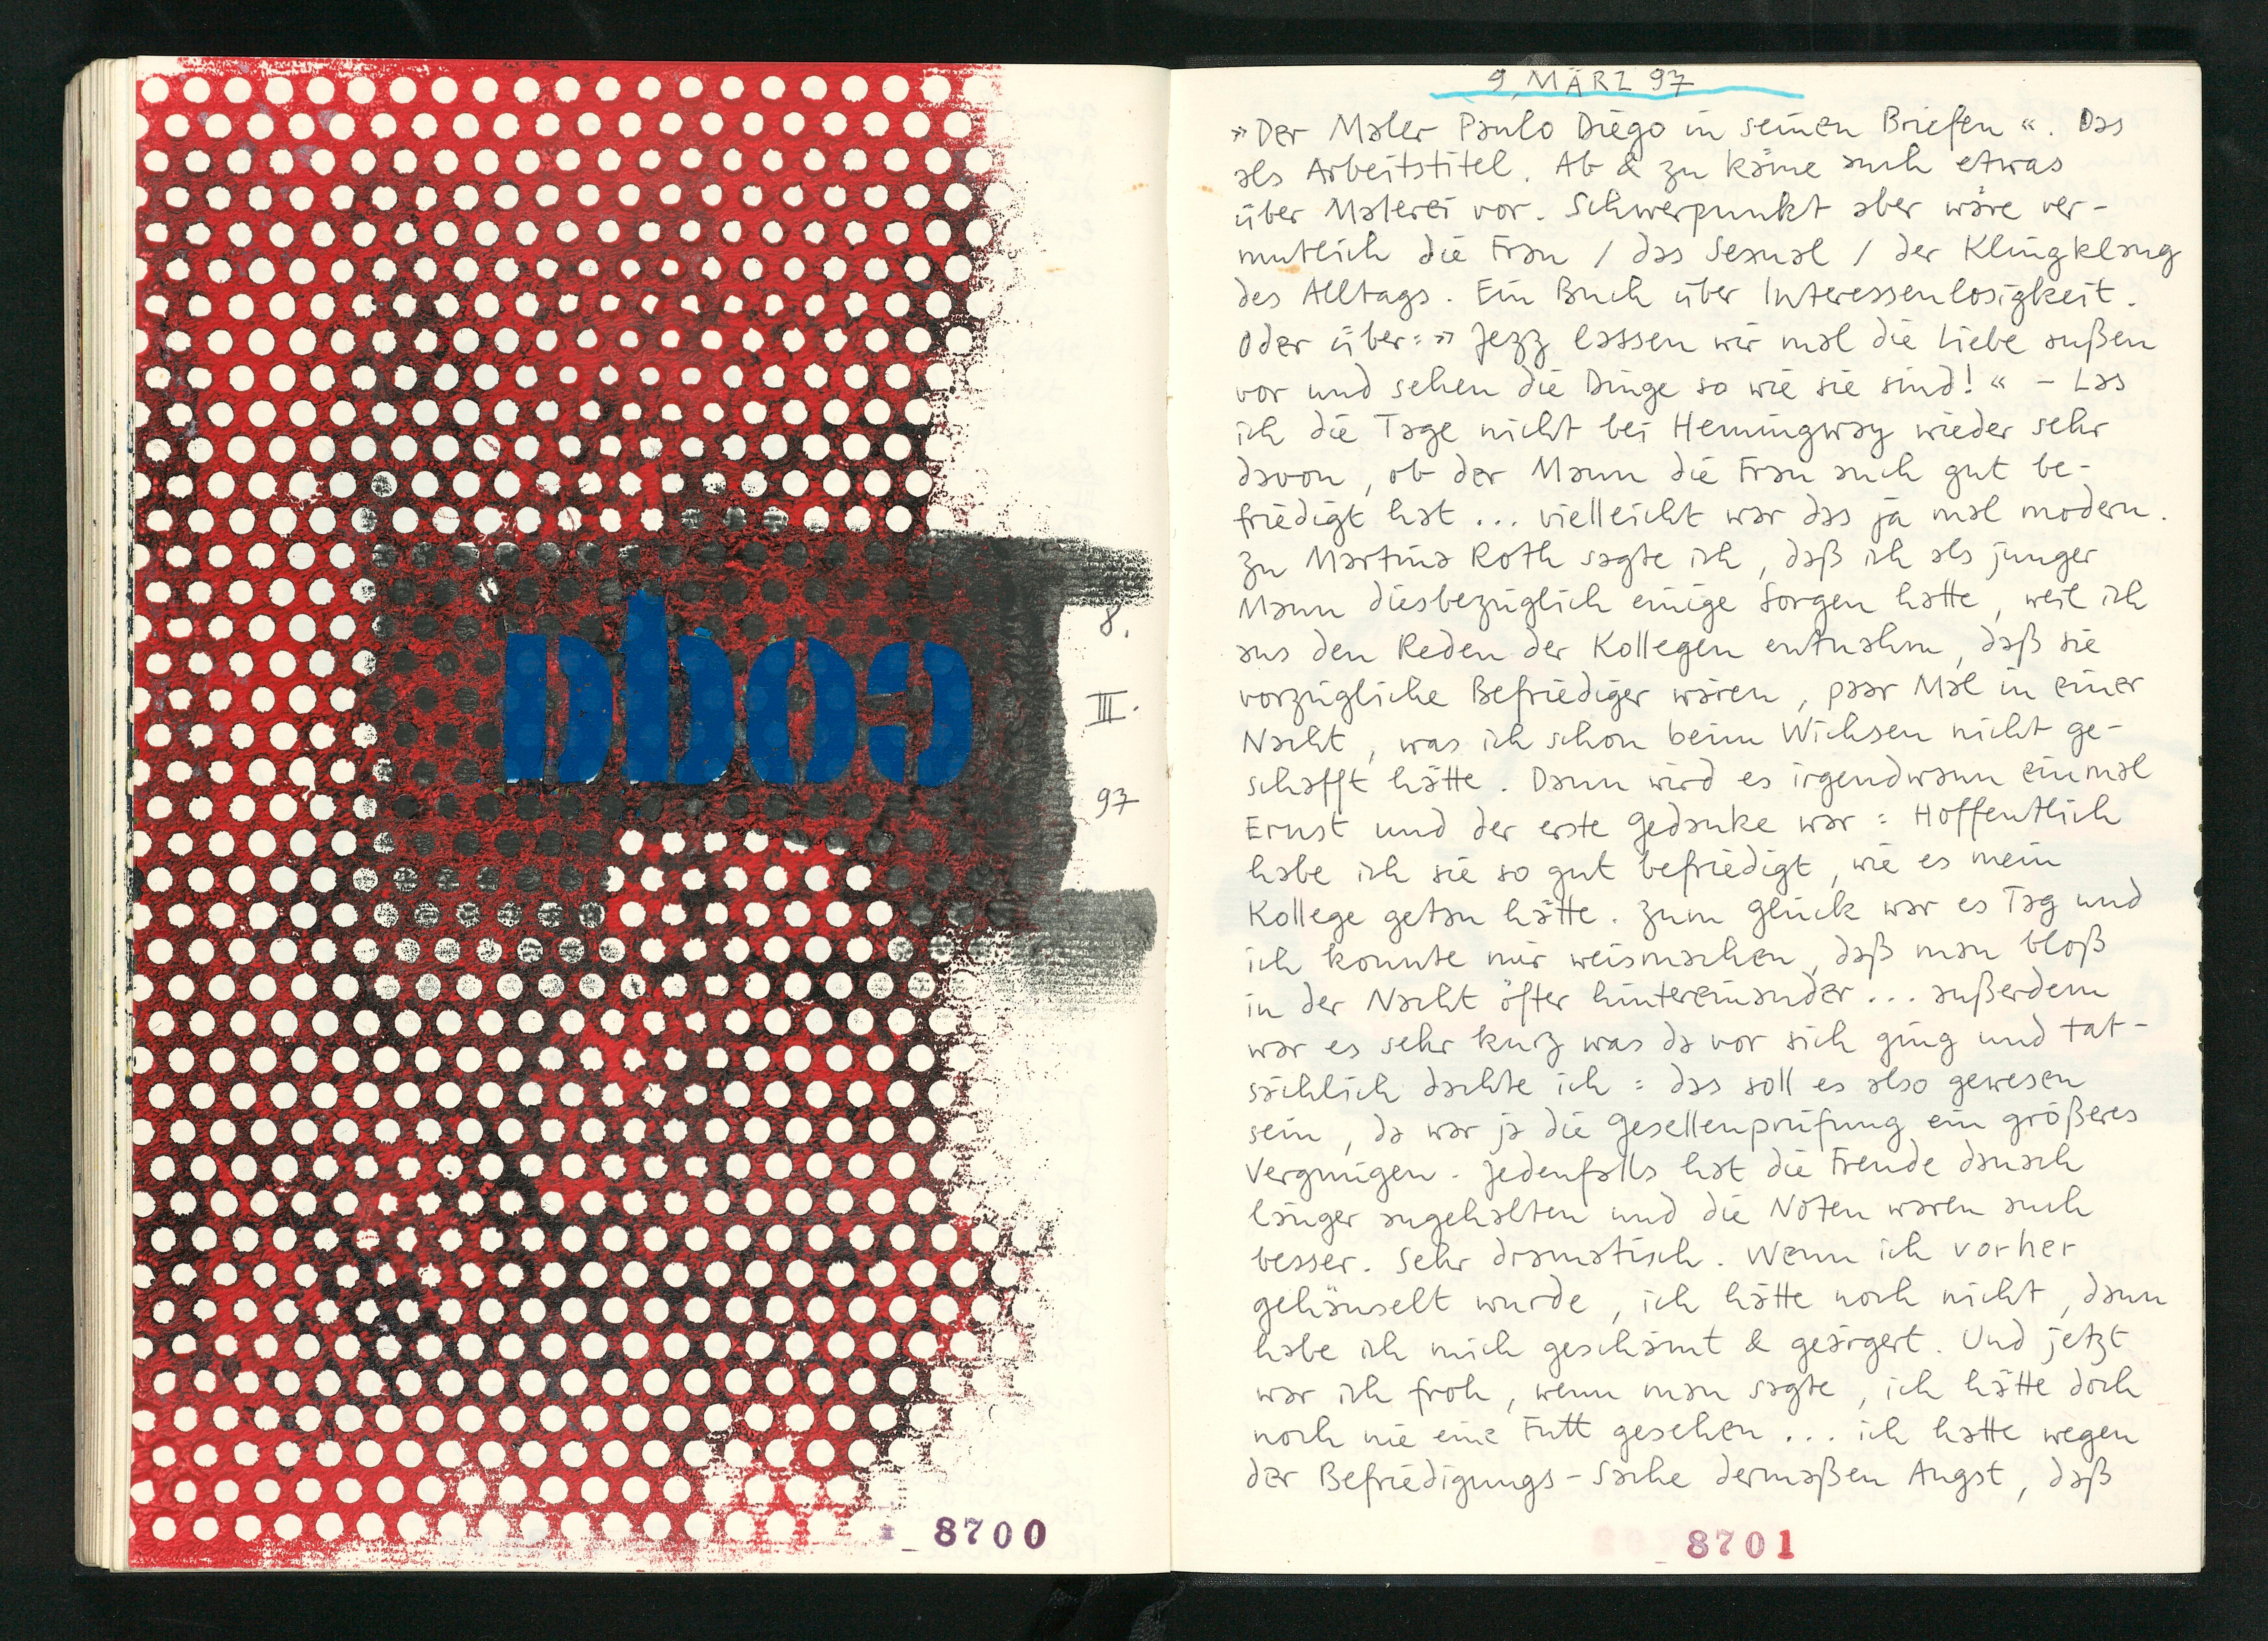 8.
III.
97
8700
9. MÄRZ 97
»Der Maler Paulo Diego in seinen Briefen«. Das
als Arbeitstitel. Ab & zu käme auch etwas
über Malerei vor. Schwerpunkt aber wäre ver-
mutlich die Frau / das Sexual / der Klingklang
des Alltags. Ein Buch über Interessenlosigkeit.
Oder über: » Jezz lassen wir mal die Liebe außen
vor und sehen die Dinge so wie sie sind! « – Las
ich die Tage nicht bei Hemingway wieder sehr
davon, ob der Mann die Frau auch gut be-
friedigt hat ... vielleicht war das ja mal modern.
Zu Martina Roth sagte ich, daß ich als junger
Mann diesbezüglich einige Sorgen hatte, weil ich
aus den Reden der Kollegen entnahm, daß sie
vorzügliche Befriediger wären, paar Mal in einer
Nacht, was ich schon beim Wichsen nicht ge-
schafft hätte. Dann wird es irgendwann einmal
Ernst und der erste Gedanke war: Hoffentlich
habe ich sie so gut befriedigt, wie es mein
Kollege getan hätte. Zum Glück war es Tag und
ich konnte mir weismachen, daß man bloß
in der Nacht öfter hintereinander ... außerdem
war es sehr kurz was da vor sich ging und tat-
sächlich dachte ich: das soll es also gewesen
sein, da war ja die Gesellenprüfung ein größeres
Vergnügen. Jedenfalls hat die Freude danach
länger angehalten und die Noten waren auch
besser. Sehr dramatisch. Wenn ich vorher
gehänselt wurde, ich hätte noch nicht, dann
habe ich mich geschämt & geärgert. Und jetzt
war ich froh, wenn man sagte, ich hätte doch
noch nie eine Futt gesehen ... ich hatte wegen
der Befriedigungs-Sache dermaßen Angst, daß
8701